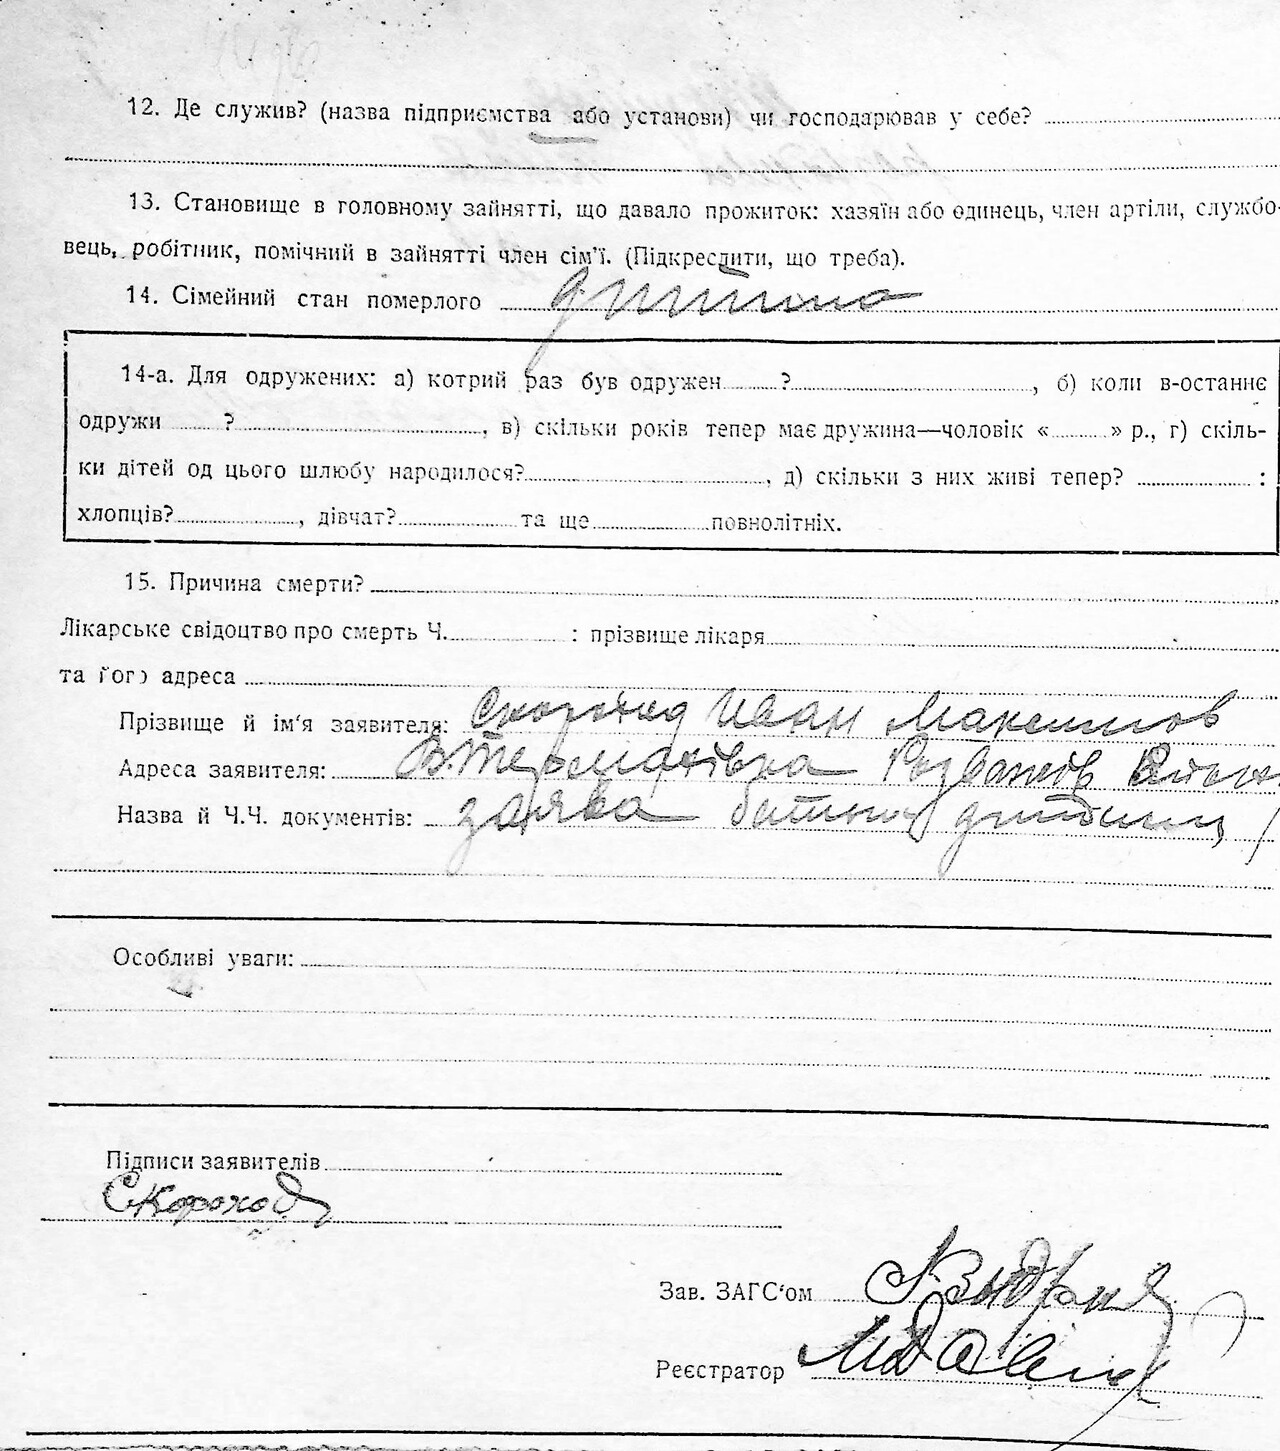 12. Де служив? (назва підприємства або установи) чи господарював у себе?
13. Становище в головному зайнятті, що давало прожиток: хазяїн або одинець, член артіли, службо-
вець, робітник, помічний в зайнятті член сім’ї. (Підкреслити, що треба).
14. Сімейний стан померлого дитина
14-а. Для одружених: а) котрий раз був одружен ? , б) коли в-останнє
одружи ? , в) скільки років тепер має дружина—чоловік « » р., г) скіль-
ки дітей од цього шлюбу народилося? , д) скільки з них живі тепер? :
хлопців? , дівчат? та ще повнолітніх.
15. Причина смерти?
Лікарське свідоцтво про смерть Ч. : прізвище лікаря
та його адреса
Прізвище й ім‘я заявителя: Скороход Иван Максимов
Адреса заявителя: В. Термахівка Розважів
Назва й Ч.Ч. документів: заява батька дитини
Особливі уваги:
Підписи заявителів
Скороход
Зав. ЗАГС‘ом
Реєстратор